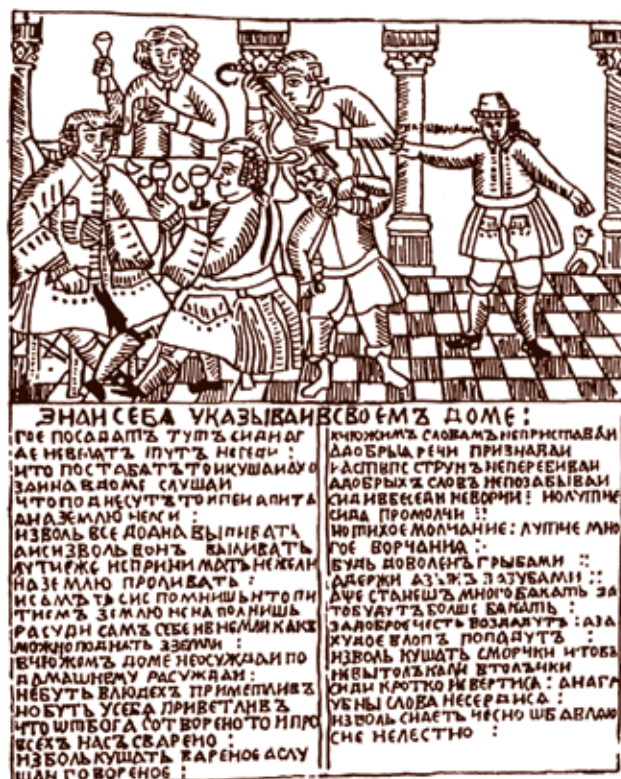 ЗНАИ СЕБА УКАЗЫВАИ В СВОЕМЪ ДОМЕ:
ГДЕ ПОСАДАТЪ ТУТЪ СИДИ А Г
ДЕ НЕВЕЛАТЪ ТУТЪ НЕГЕДИ:
ЧТО ПОСТАВАТЪ ТО И КУШАИ А ХО
ЗАИНА В ДОМЕ СЛУШАИ
ЧТО ПОДНЕСУТЪ ТО И ПЕИ А ПИТА
НА ЗЕМЛЮ НЕЛЕИ:
ИЗВОЛЬ ВСЕ ДО ДНА ВЫПИВАТЬ
А НЕ ИЗВОЛЬ ВОНЪ ВЫЛИВАТЬ
ЛУТЧЕ ЖЕ НЕ ПРИНИМАТЬ НЕЖЕЛИ
НА ЗЕМЛЮ ПРОЛИВАТЬ:
И САМЪ ТЫ СИЕ ПОМНИШЬ ЧТО ПИ
ТИЕМЪ ЗЕМЛЮ НЕ НАПОЛНИШЬ
РАСУДИ САМ СЕБЕ И ВНЕМЛИ КАКЪ
МОЖНО ПОДНАТЬ ЗЗЕМЛИ:
В ЧЮЖОМЪ ДОМЕ НЕОСУЖДАИ ПО
ДАМАШНЕМУ РАСУЖДАИ:
НЕБУТЬ ВЛЮДЕХЪ ПРИМЕТЛИВЪ
НО БУТЬ УСЕБА ПРИВЕТЛИВЪ
ЧТО ШТ БОГА СОТВОРЕНО ТО И ПРО
ВСЕХЪ НАСЪ СВАРЕНО:
ИЗВОЛЬ КУШАТЬ ВАРЕНОЕ А СЛУ
ШАИ ГОВОРЕНОЕ:
К ЧЮЖИМЪ СЛОВАМЪ НЕПРИСТАВАИ
А ДОБРЫА РЕЧИ ПРИЗНАВАИ
ЧАСТЫХ СТРУНЪ НЕПЕРЕБИВАИ
А ДОБРЫХЪ СЛОВЪ НЕПОЗАБЫВАИ
СИДИ В БЕСЕДИ НЕВОРЧИ: НО ЛУТЧЕ
СИДА ПРОМОЛЧИ:
НО ТИХОЕ МОЛЧАНИЕ: ЛУТЧЕ МНО
ГОЕ ВОРЧАНИА:
БУДЬ ДОВОЛЕНЪ ГРЫБАМИ:
А ДЕРЖИ АЗЫКЪ ЗА ЗУБАМИ:
АЧЕ СТАНЕШЪ МНОГО БАКАТЬ ЗА
ТО БУДУТЬ БОЛШЕ БАКАТЬ:
ЗА ДОБРОЕ ЧЕСТЬ ВОЗДАДУТЪ: А ЗА
ХУДОЕ В ЛОП ПОПАДУТЪ:
ИЗВОЛЬ КУШАТЬ СМОРЧКИ ЧТОБЪ
НЕВЫТОЛКАЛИ В ТОЛЪЧКИ
СИДИ КРОТКО НЕВЕРТИСА: А НАГР
УБНЫ СЛОВА НЕСЕРДИСА:
ИЗВОЛЬ СИЕ ЧЕСНО
СИЕ НЕЛЕСТНО: